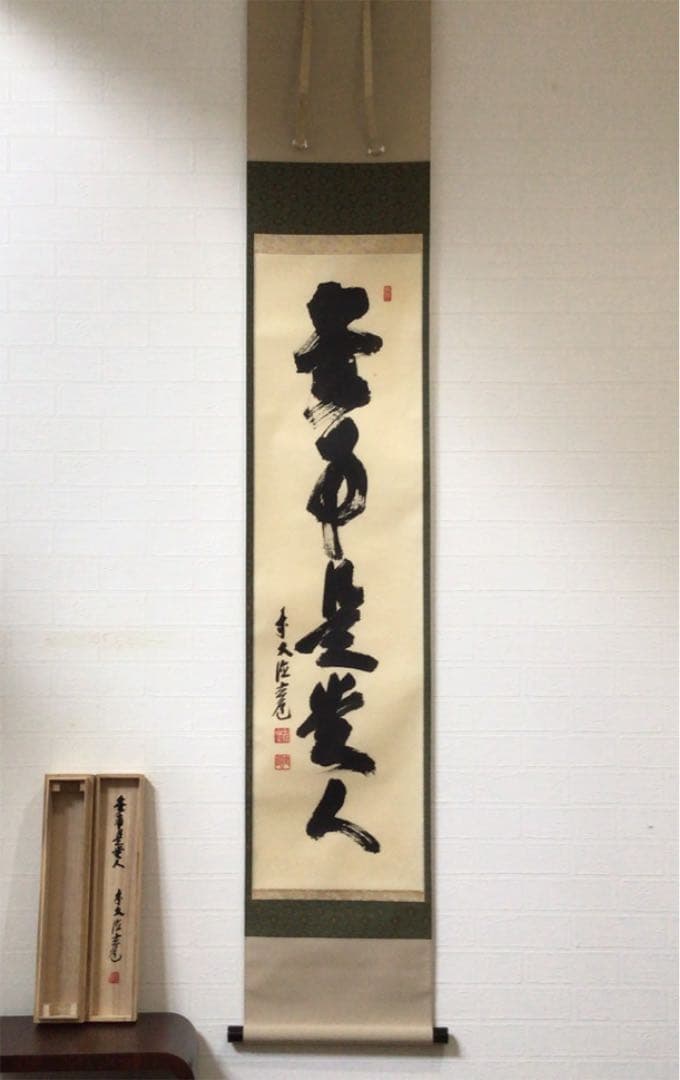 無事是貴人
前大徳
無事是貴人
前大徳